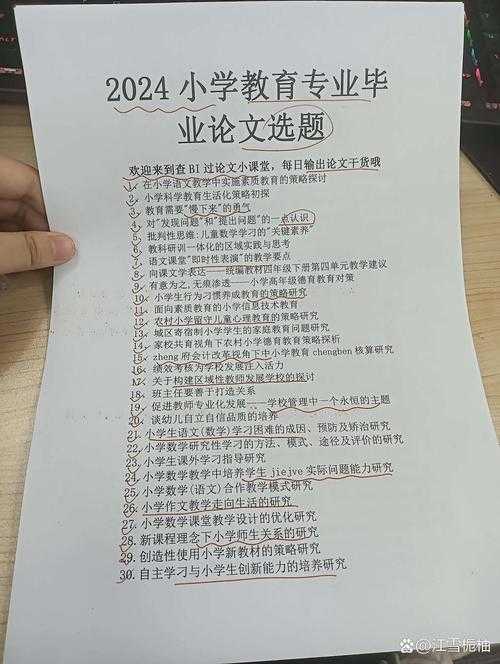 2024 小学教育专业毕
业论文选题
欢迎来到查BI过论文小课堂，每日输出论文干货哦
1. 在小学语文教学中实施素质教育的策略探讨
2. 小学科学教育生活化策略初探
3. 教育需要"慢下来"的勇气
4. 对"发现问题"和"提出问题"的一点认识
5. 批判性思维:儿童数学学习的"关键素养"
6. 教科研训一体化的区域实践与思考
7. 语文课堂"即时性表演"的教学要点
8. 向课文学表达——统编教材四年级下册第四单元教学建议
9. 有意为之,无痕渗透——小学高年级德育教育对策
10. 小学生行为习惯养成教育的策略研究
11. 面向素质教育的小学信息技术教育
12. 农村小学留守儿童心理教育的策略研究
13. 城区寄宿制小学学生的家庭教育问题研究
14. 家校共育视角下农村小学德育教育策略探析
15. zheng府会计改革视角下中小学教育chengben核算研究
16. 绩效考核为学校发展注入活力
17. 关于构建区域性教师发展学校的探讨
18. 班主任要善于打造关系
19. 促进教师专业化发展——学校管理中一个永恒的主题
20. 谈幼儿自立自信品质的培养
21. 小学生语文(数学)学习困难的成因、预防及矫治研究
22. 小学数学研究性学习的方法、模式、途径及评价的研究
23. 小学生课外学习指导研究
24. 小学数学教学中培养学生jiejve实际问题能力研究
25. 小学数学(语文)合作教学模式研究
26. 小学作文教学走向生活的研究
27. 小学数学课堂教学设计的优化研究
28. 新课程理念下小学师生关系的研究
29. 创造性使用小学新教材的策略研究
30. 自主学习与小学生创新能力的培养研究
江雪栀柚